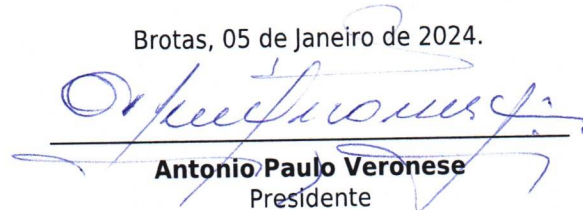 Brotas, 05 de Janeiro de 2024.
Antonio Paulo Veronese
Presidente